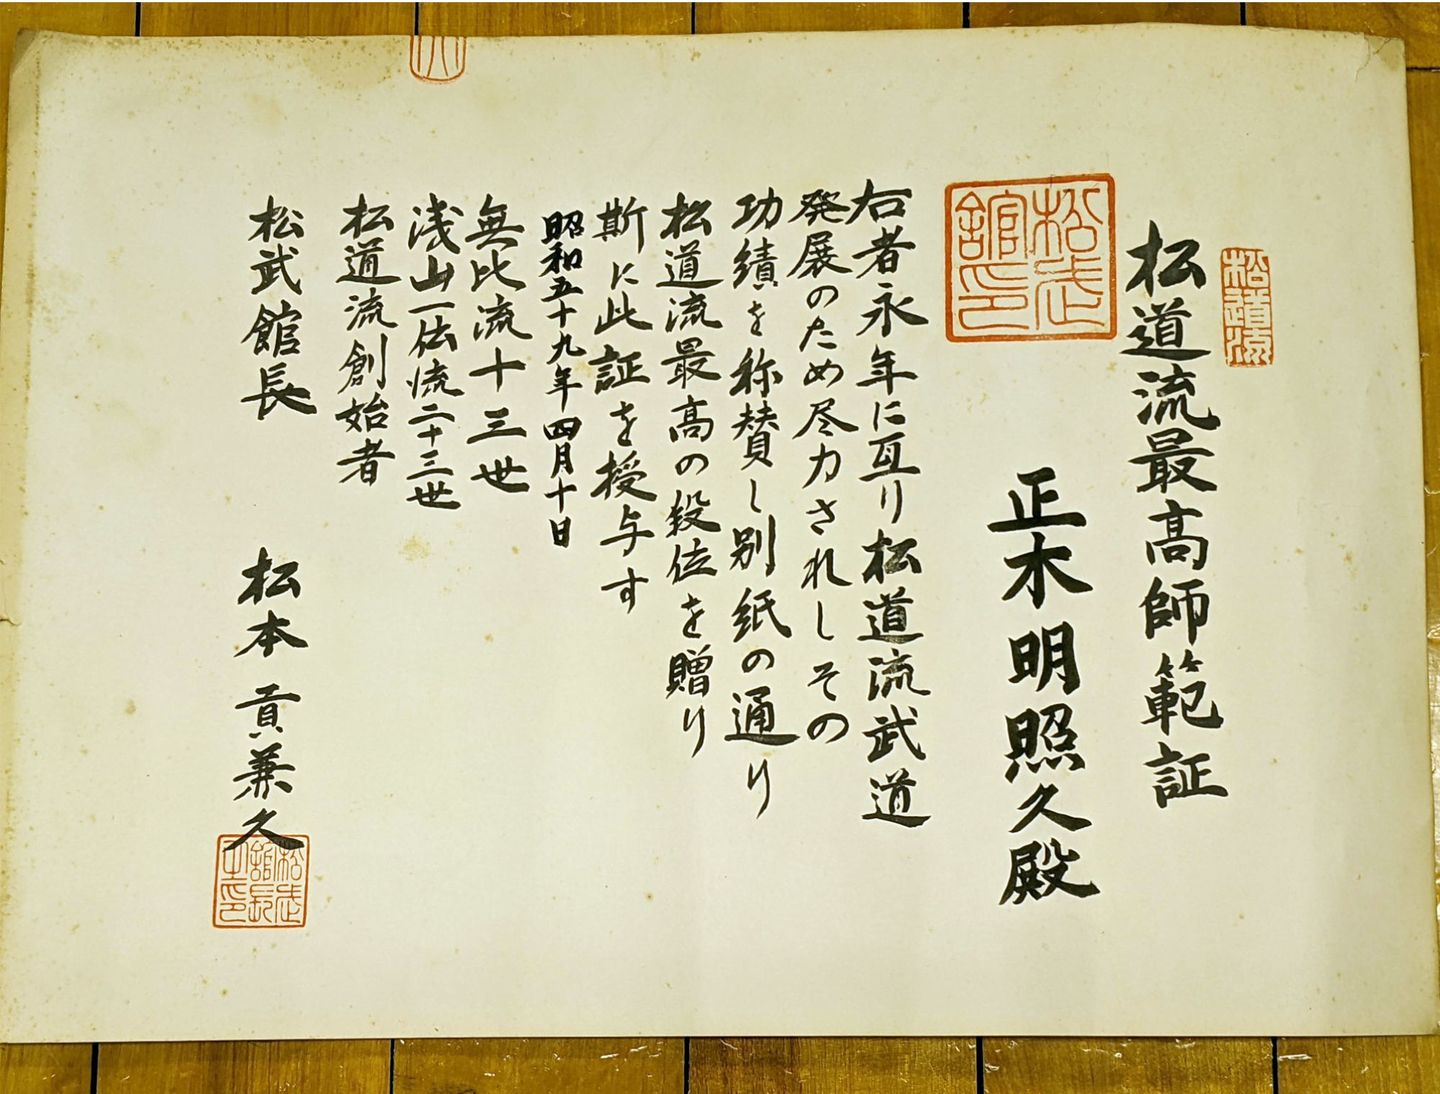 松道流
松道流最高師範証
松武館印
正木明照久殿
右者永年に亙り松道流武道
発展のため尽力されしその
功績を称賛し別紙の通り
松道流最高の段位を贈り
斯に此証を授与す
昭和五十九年四月十日
無比流十三世
浅山一伝流二十三世
松道流創始者
松武館長 松本貢兼久
松武館長之印